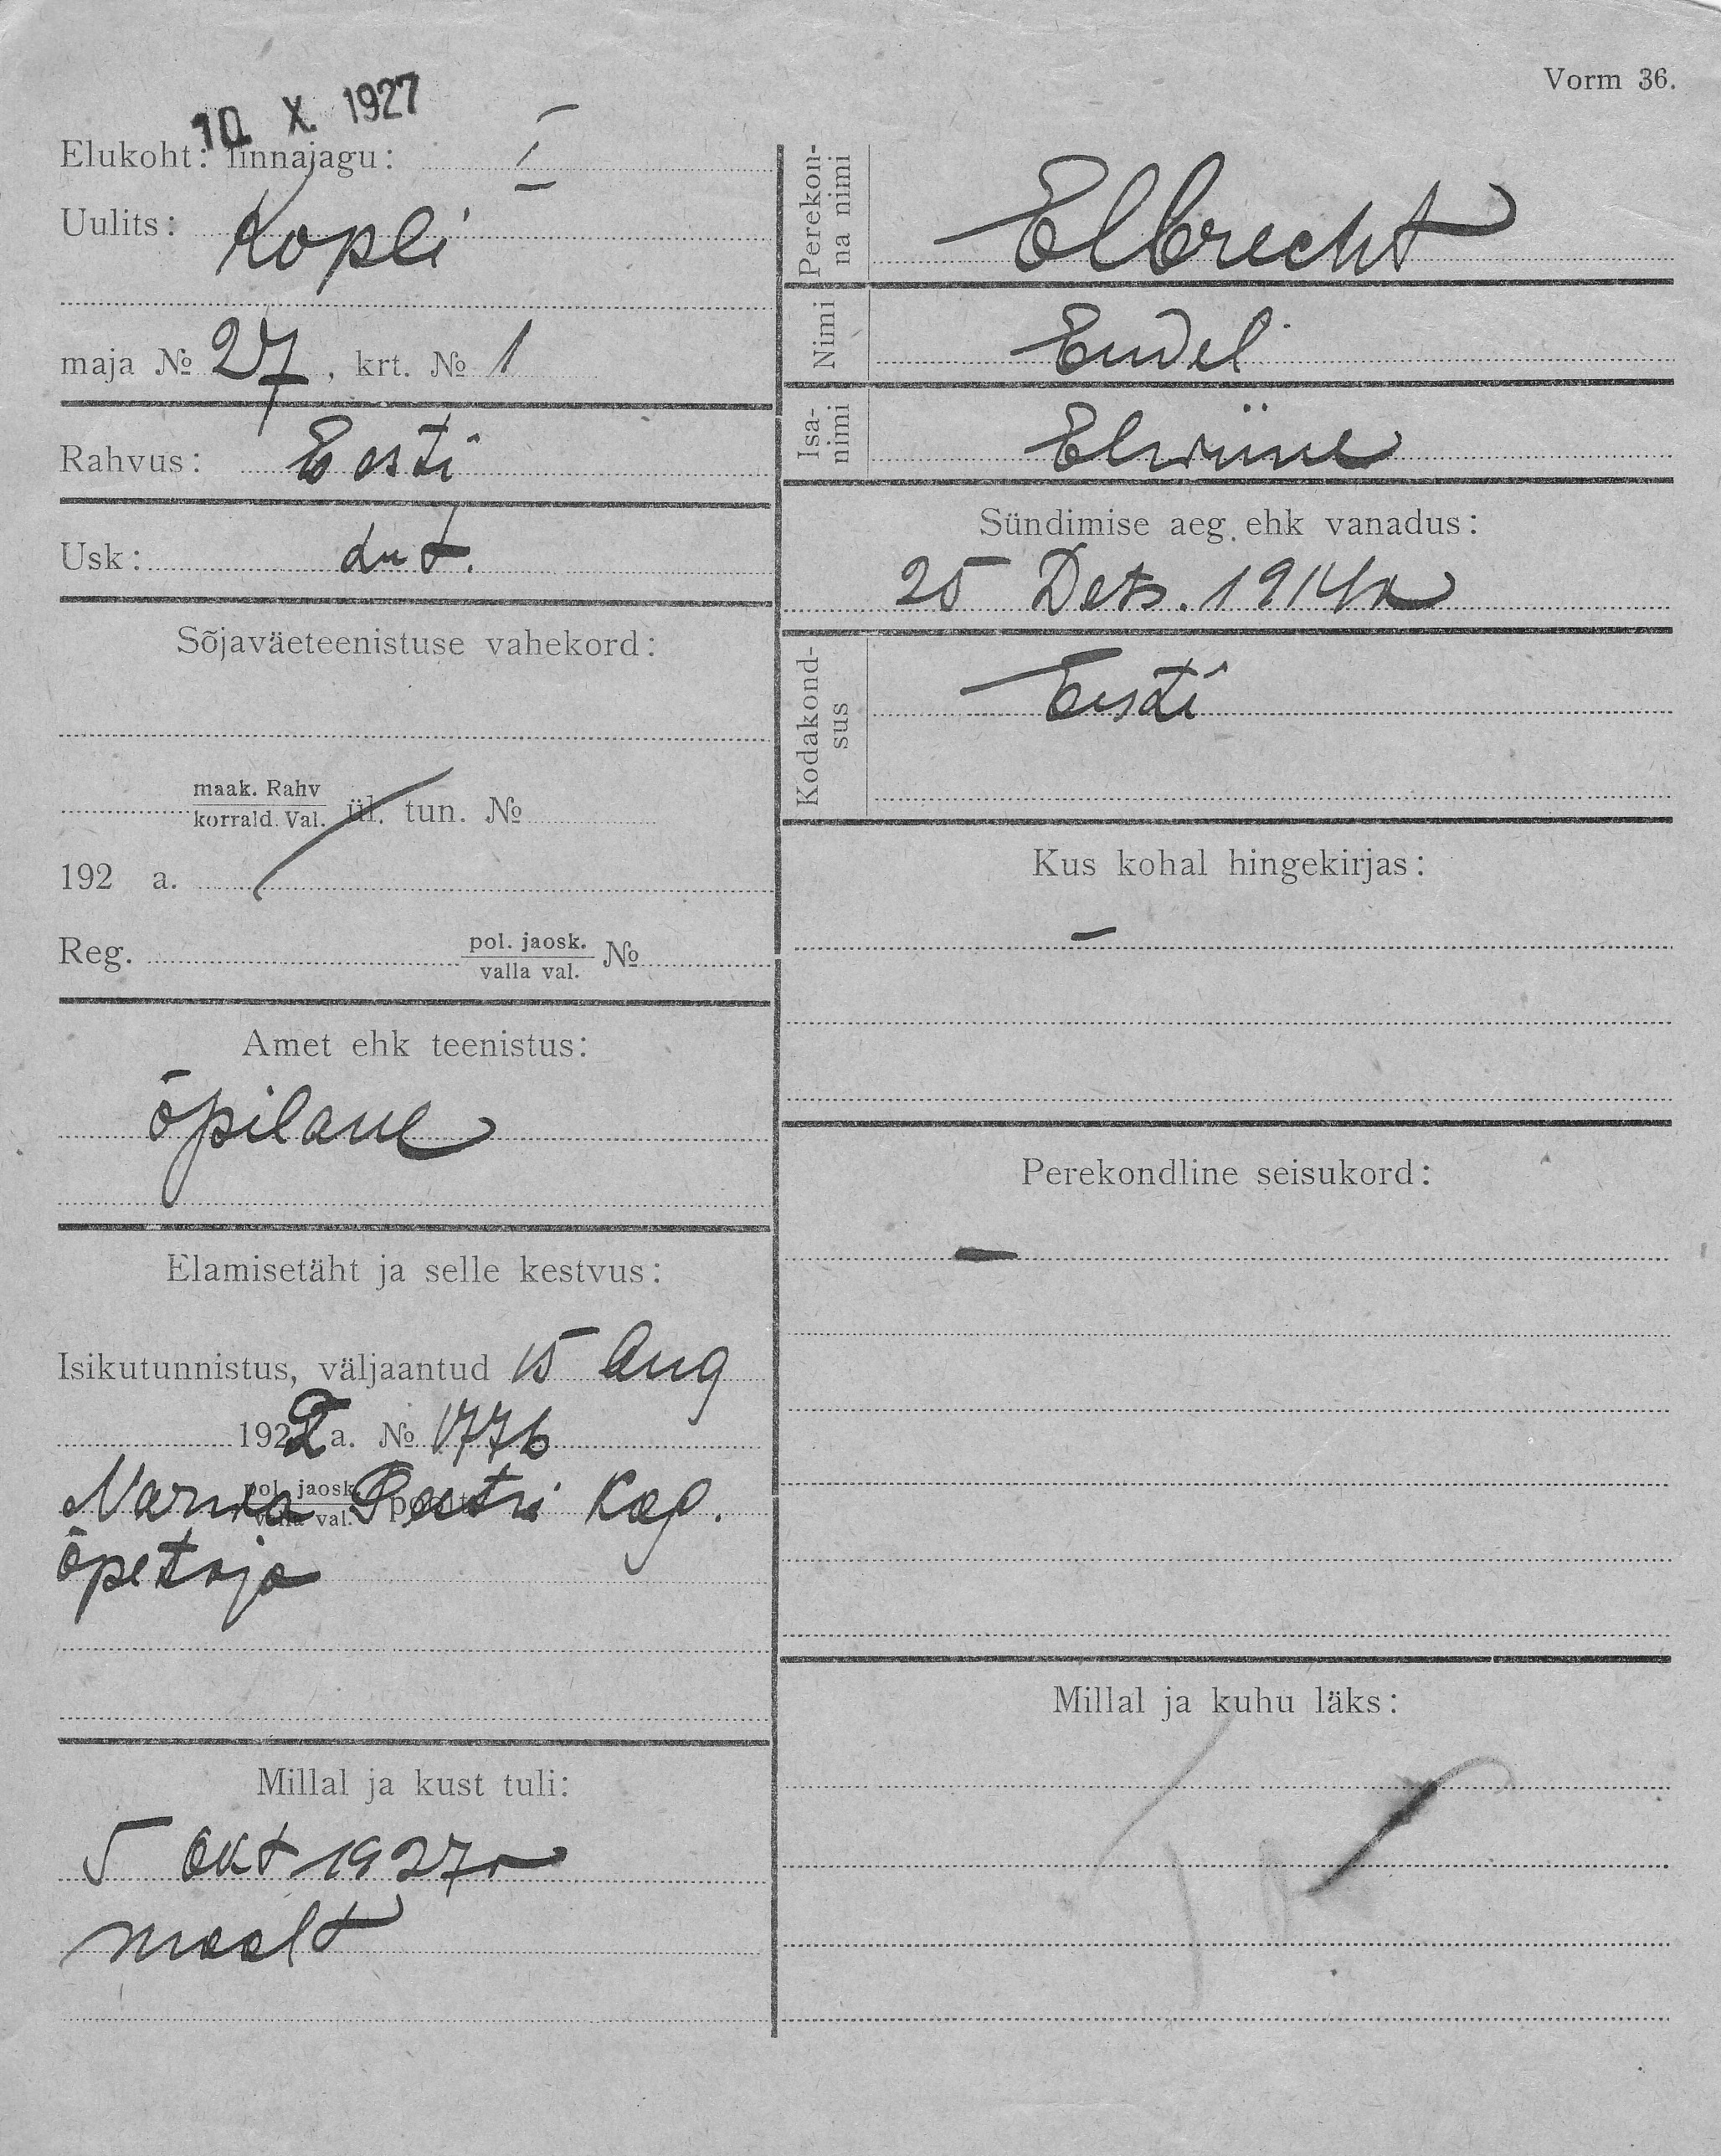 Vorm 36.
10. X. 1927
Elukoht: linnajagu: I
Uulits: Kopli
maja № 27, krt. № 1
Rahvus: Eesti
Usk: Lut.
Sõjaväeteenistuse vahekord:
maak. Rahv
korrald. Val. ül. tun. №
192 a.
Reg. pol. jaosk.
valla val. №
Amet ehk teenistus:
õpilane
Elamisetäht ja selle kestvus:
Isikutunnistus, väljaantud 15 Aug
192 a. № 1776
pol. jaosk.
valla val.
Narva Peetri Kog.
õpetaja
Millal ja kust tuli:
5 Okt 1927a
maalt
Perekon-
na nimi
Elbrecht
Nimi
Endel
Isa-
nimi
Sündimise aeg ehk vanadus:
25 Dets. 1914a
Kodakond-
sus
Eesti
Kus kohal hingekirjas:
–
Perekondline seisukord:
–
Millal ja kuhu läks: